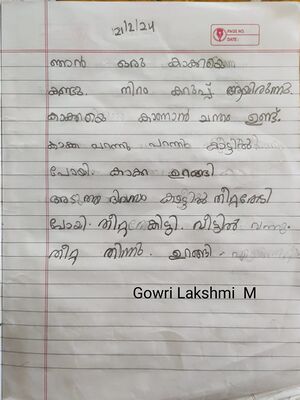 21/2/24
PAGE NO.
DATE:
ഞാൻ ഒരു കാക്കയെ
കണ്ടു. നിറം കറുപ്പ് ആയിരുന്നു.
കാക്കയെ കാണാൻ ചന്തം ഉണ്ട്.
കാക്ക പറന്നു പറന്നു കാട്ടിൽ
പോയി. കാക്ക ഉറങ്ങി
അടുത്ത ദിവസം കാട്ടിൽ തീറ്റതേടി
പോയി. തീറ്റ കിട്ടി. വീട്ടിൽ വന്നു.
തീറ്റ തിന്നു. ഉറങ്ങി.
Gowri Lakshmi M